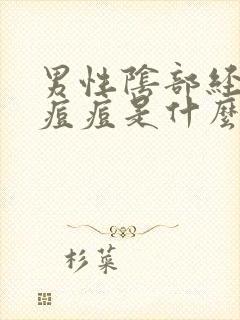 男性陰部經
痘痘是什麼
杉菜